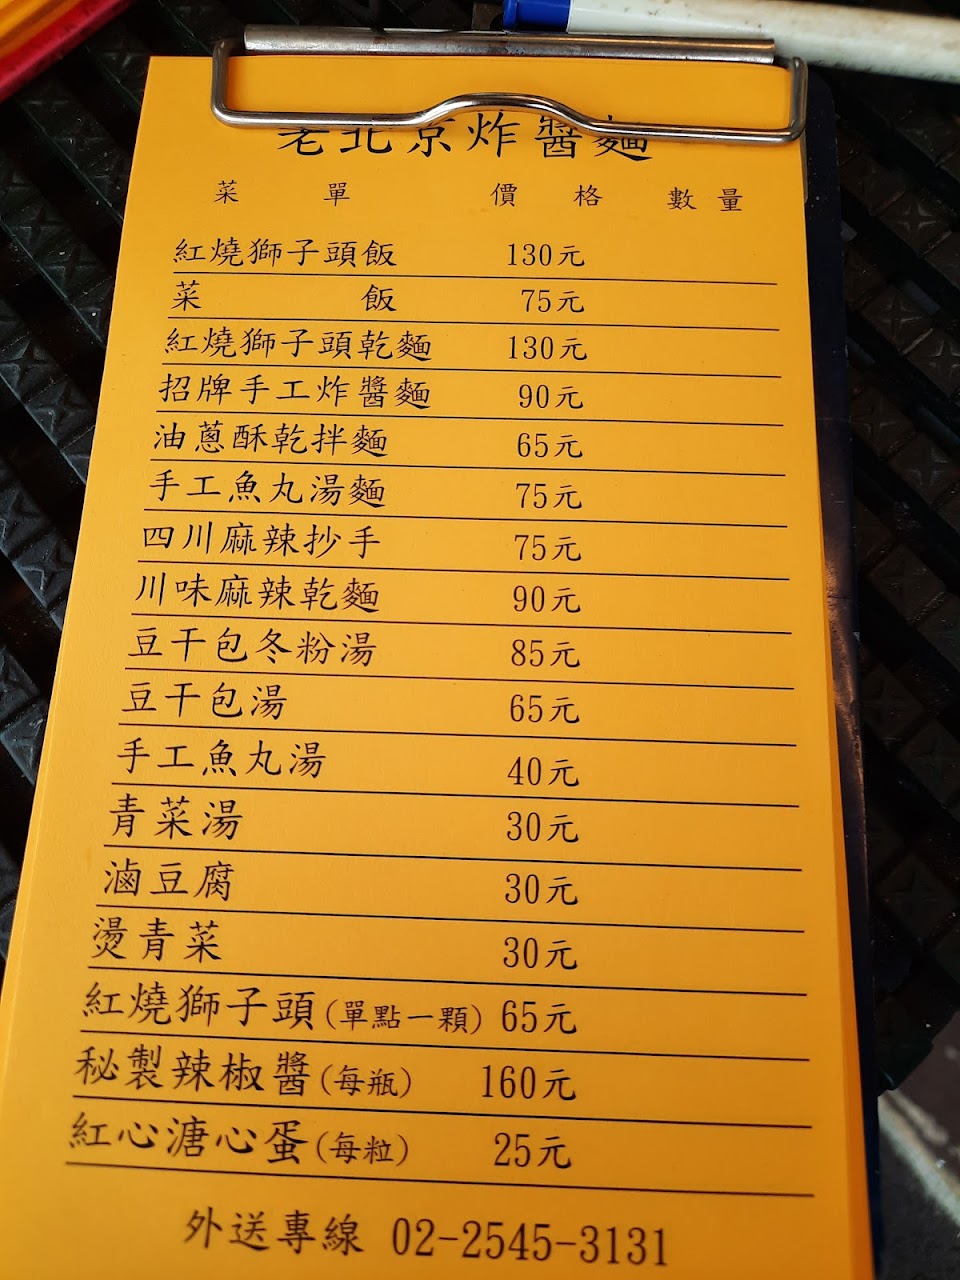 老北京炸醬麵
菜單 價格 數量
紅燒獅子頭飯 130元
菜飯 75元
紅燒獅子頭乾麵 130元
招牌手工炸醬麵 90元
油蔥酥乾拌麵 65元
手工魚丸湯麵 75元
四川麻辣抄手 75元
川味麻辣乾麵 90元
豆干包冬粉湯 85元
豆干包湯 65元
手工魚丸湯 40元
青菜湯 30元
滷豆腐 30元
燙青菜 30元
紅燒獅子頭(單點一顆) 65元
秘製辣椒醬(每瓶) 160元
紅心溏心蛋(每粒) 25元
外送專線 02-2545-3131